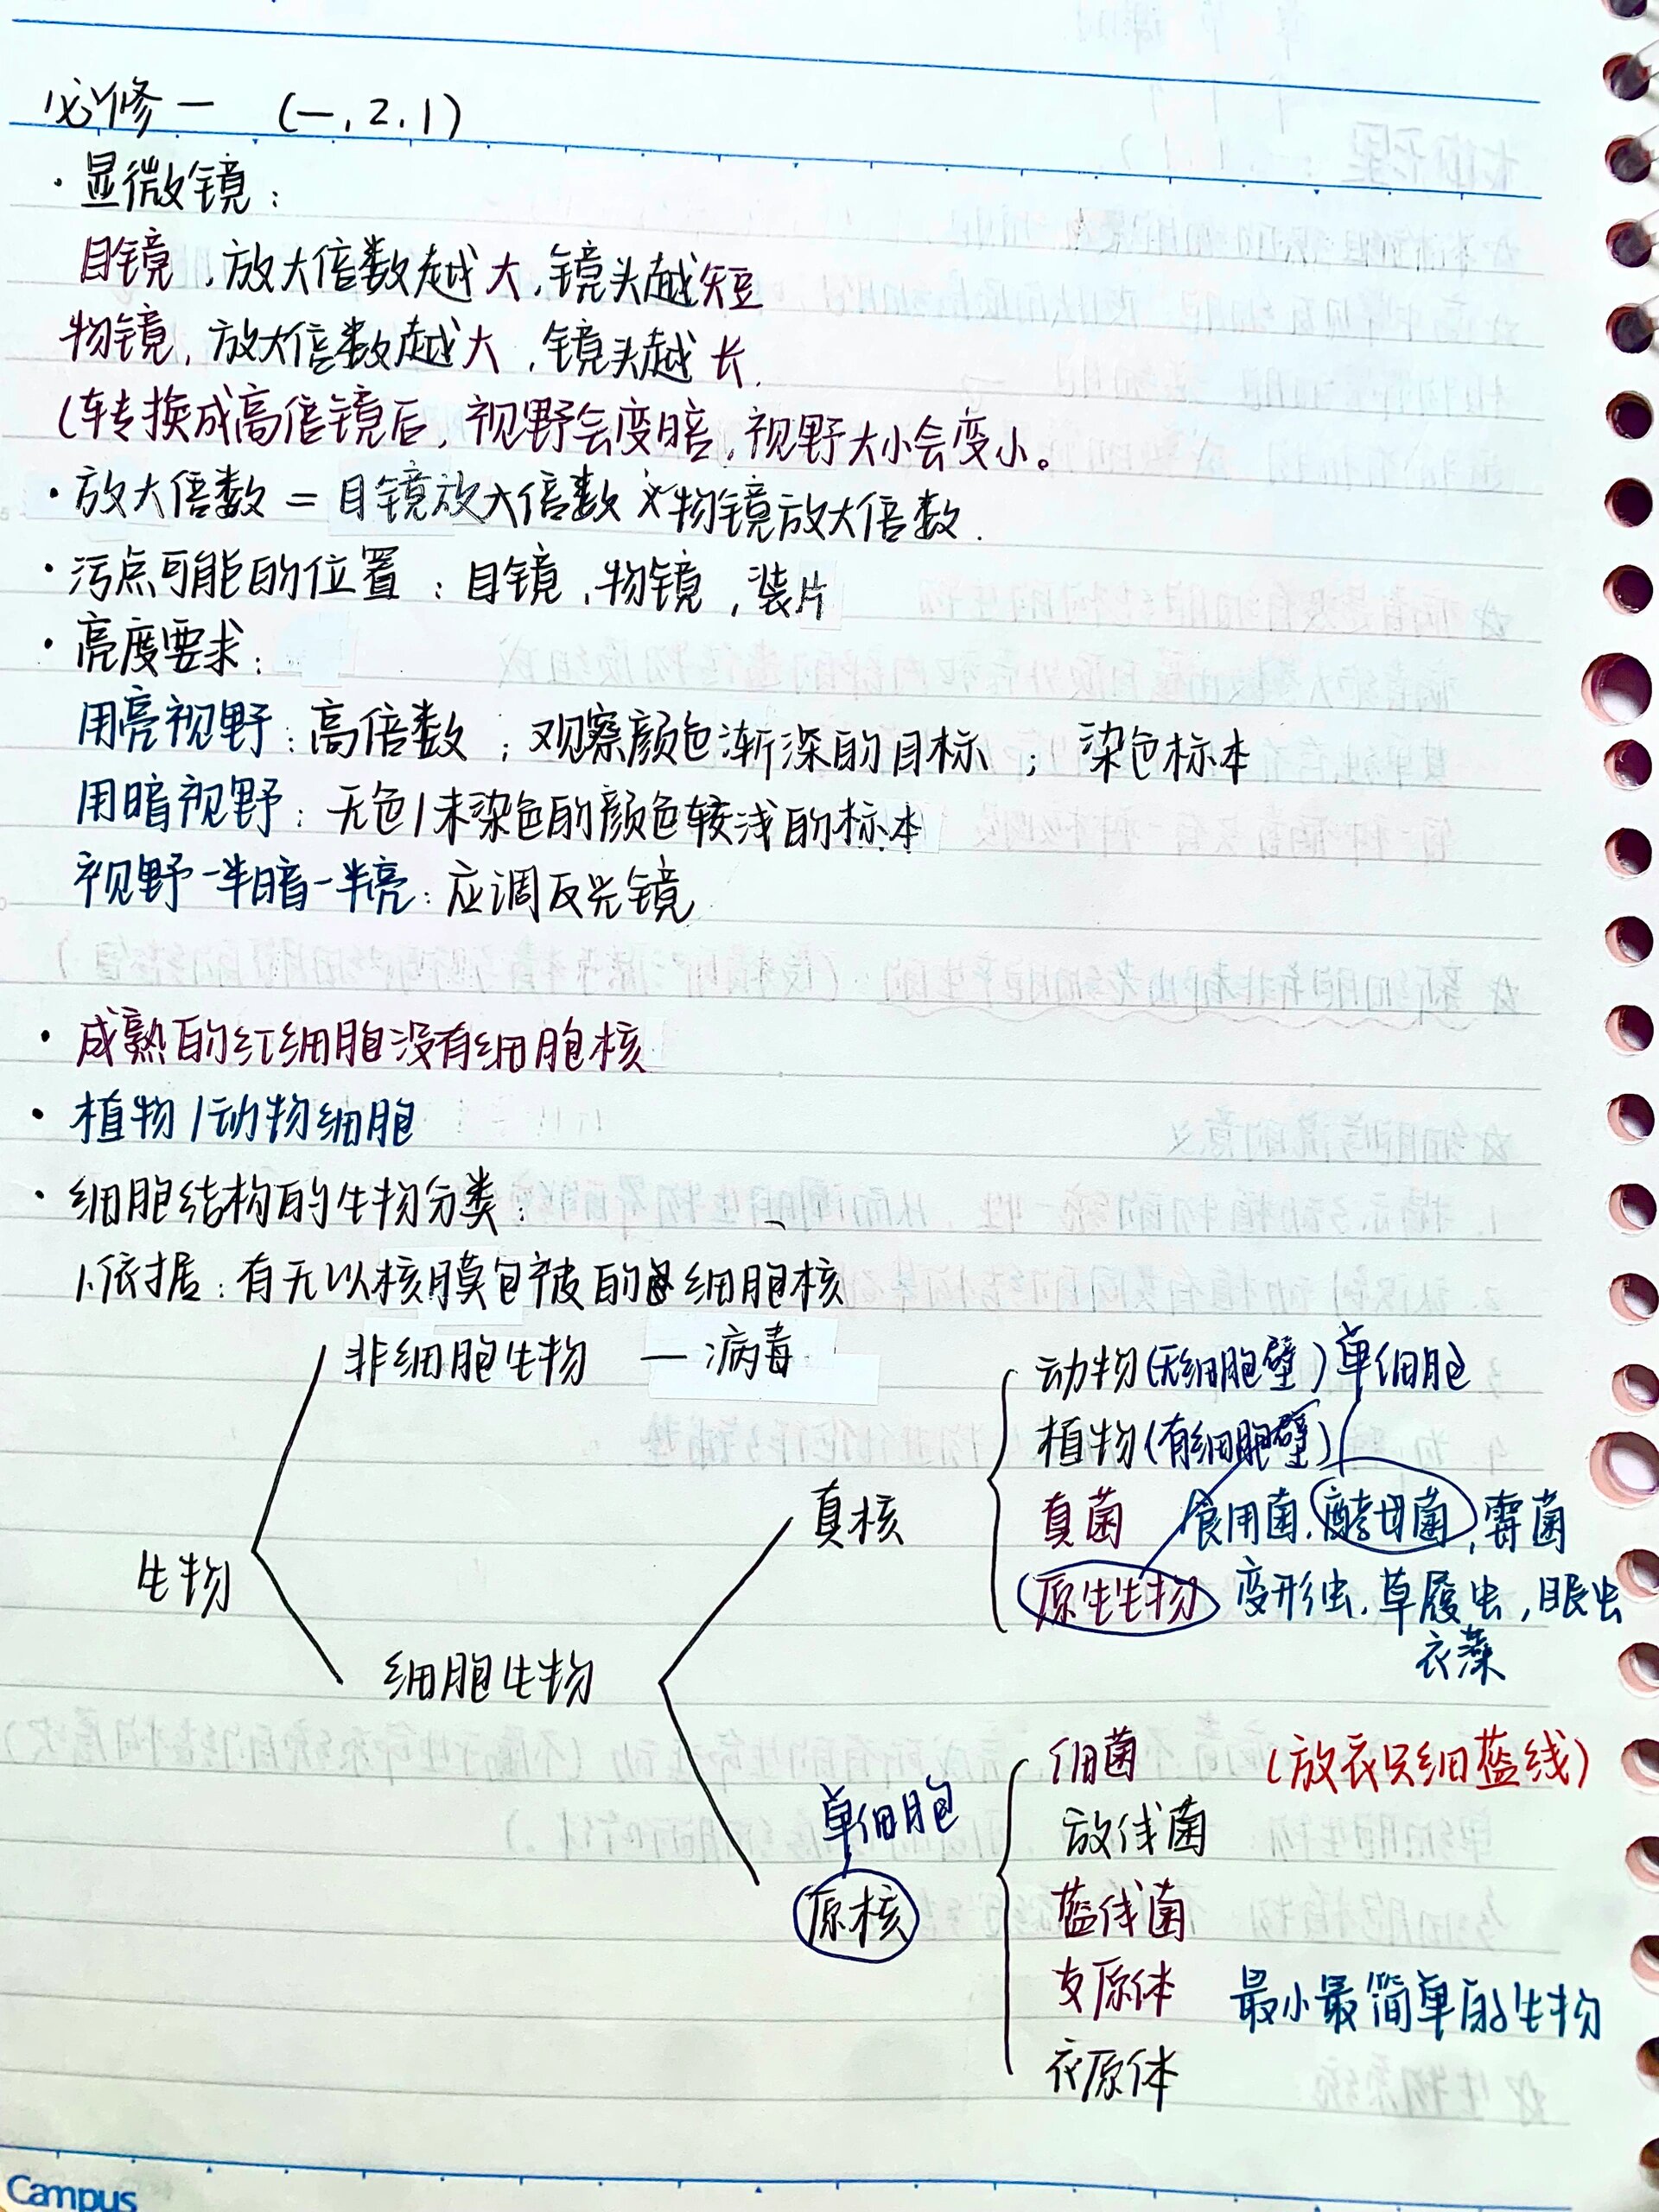 必修一 (一,2,1)
· 显微镜:
目镜,放大倍数越大,镜头越短
物镜,放大倍数越大,镜头越长.
(转换成高倍镜后,视野会变暗,视野大小会变小。
· 放大倍数 = 目镜放大倍数 × 物镜放大倍数.
· 污点可能的位置:目镜,物镜,装片
· 亮度要求:
用亮视野:高倍数;观察颜色渐深的目标;染色标本
用暗视野:无色/未染色的颜色较浅的标本
视野一半暗一半亮:应调反光镜
· 成熟的红细胞没有细胞核
· 植物/动物细胞
· 细胞结构的生物分类:
1.依据:有无以核膜包被的细胞核
非细胞生物 — 病毒
动物(无细胞壁) 单细胞
植物(有细胞壁)
真核
真菌 食用菌,酵母菌,霉菌
生物
原生生物 变形虫,草履虫,眼虫
衣藻
细胞生物
细菌 (放衣只细蓝线)
单细胞
放线菌
原核
蓝线菌
支原体 最小最简单的生物
衣原体
Campus